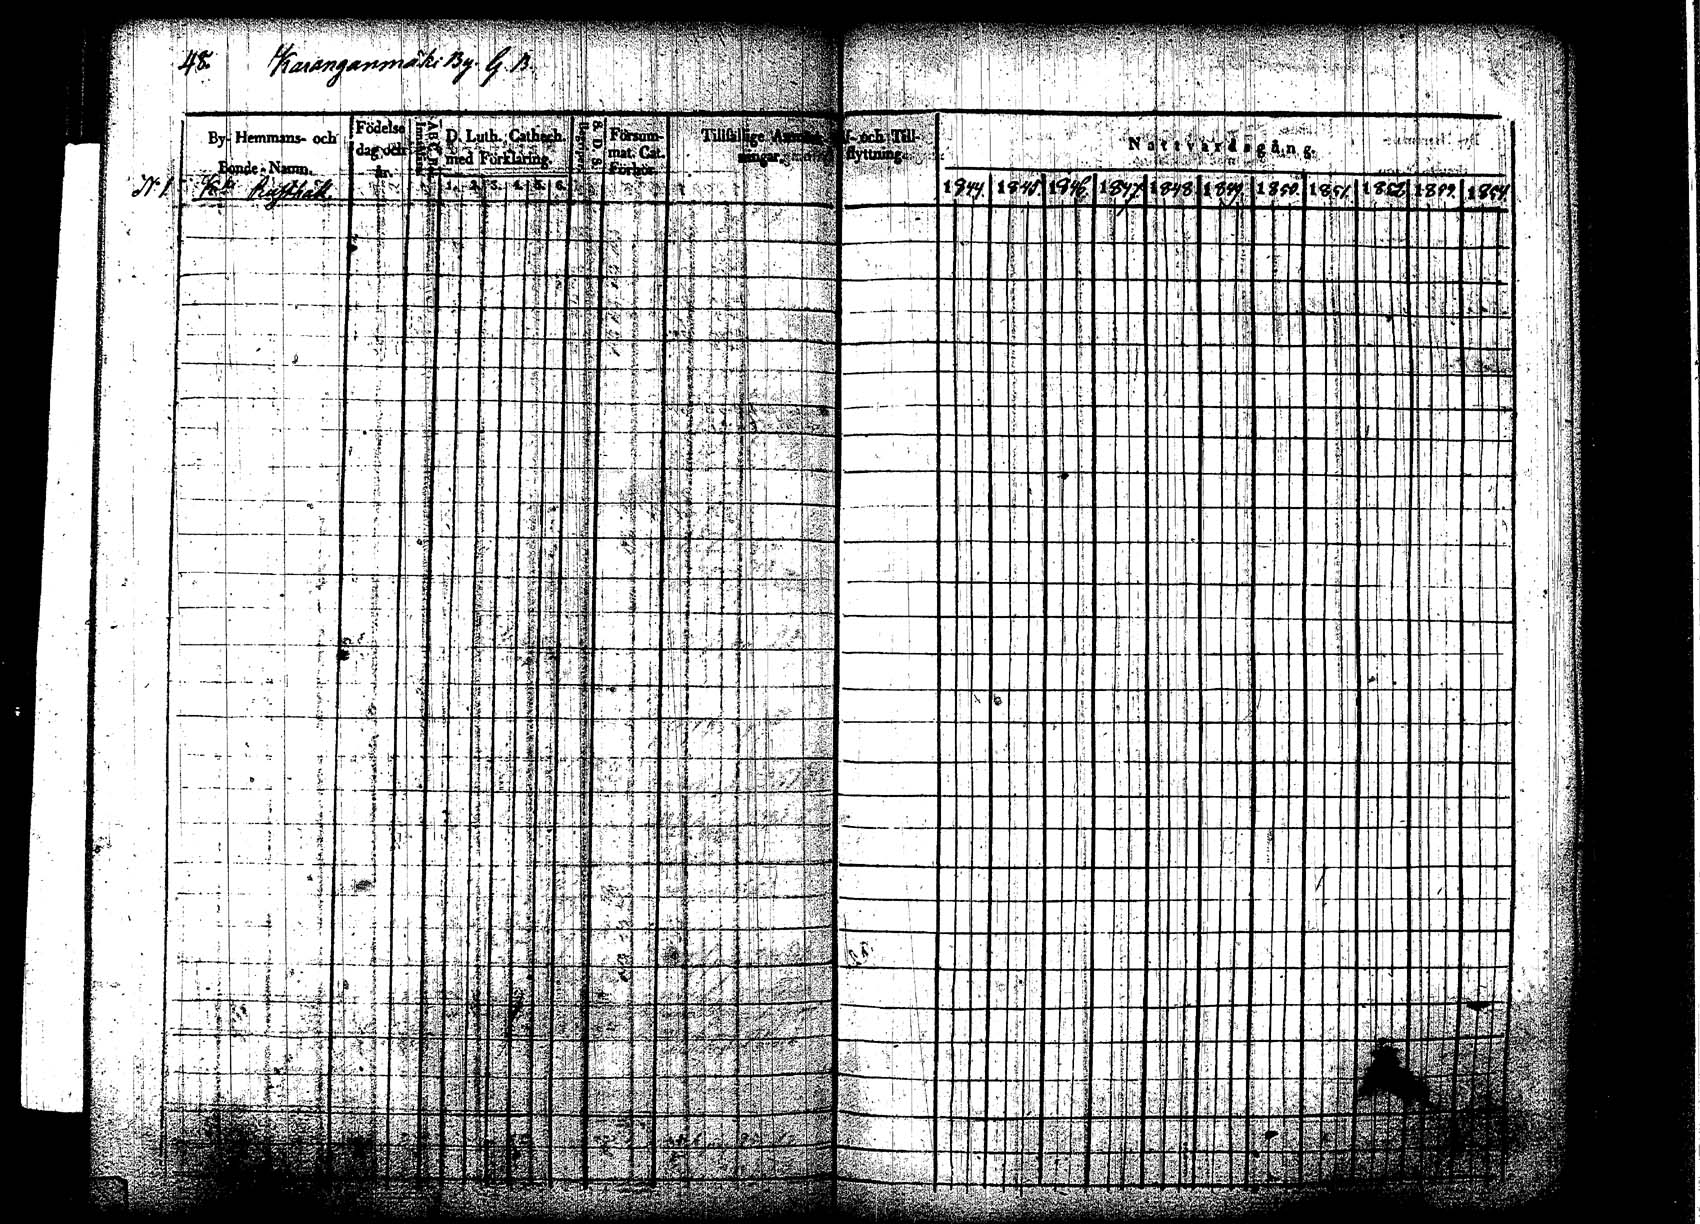 48. Karanganmäki By. G. B.
By- Hemmans- och
Bonde-Namn.
Födelse
dag och
år.
D. Luth. Cathech.
med Förklaring.
1. 2. 3. 4. 5. 6.
Försum-
mat. Cat.
Förhör.
Tillfällige
ningar.
och Till-
flyttning.
Nattvardsgång.
1844. 1845. 1846. 1847. 1848. 1849. 1850. 1851. 1852. 1853. 1854.
N 1.